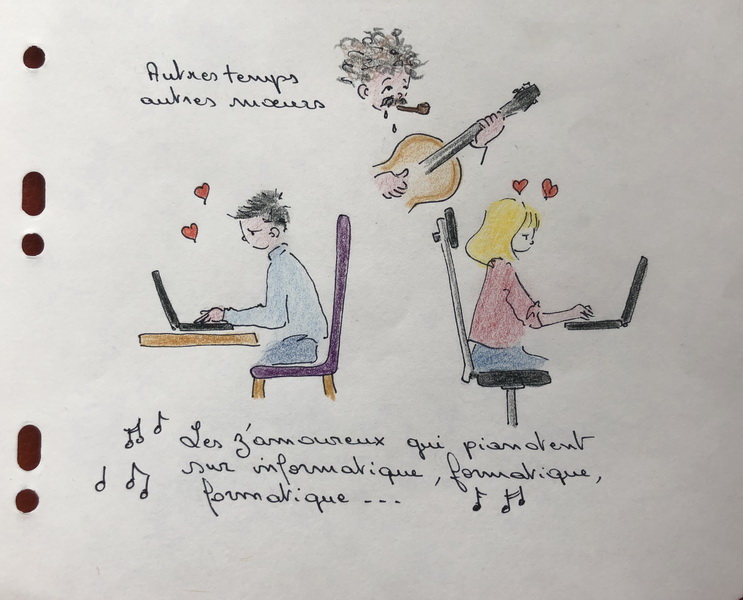 Autres temps
autres mœurs
Les z'amoureux qui pianotent
sur informatique, formatique,
formatique ---